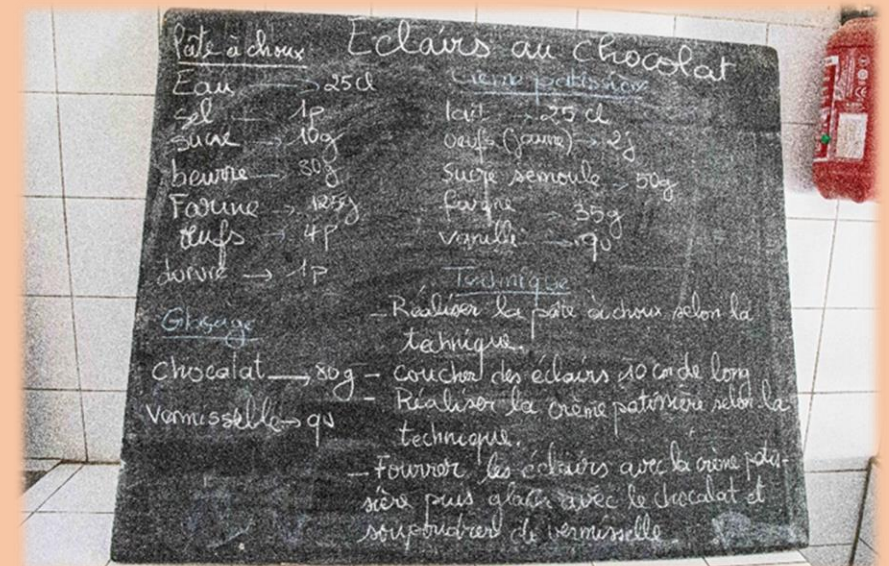 Eclairs au chocolat
Pâte à choux
Eau → 25cl
sel → 1p
sucre → 10g
beurre → 80g
Farine → 125g
œufs → 4p
dorure → 1p
Glaçage
chocolat → 80g
Vermisselle → qu
Crème patissière
lait → 25 cl
oeufs (jaune) → 2j
Sucre semoule → 50g
farine → 35g
vanille → qu
Technique
- Réaliser la pâte à choux selon la
technique.
- coucher des éclairs 10 cm de long
- Réaliser la crème patissière selon la
technique.
- Fourrer les éclairs avec la crème patis-
sière puis glacer avec le chocolat et
soupoudrer de vermisselle